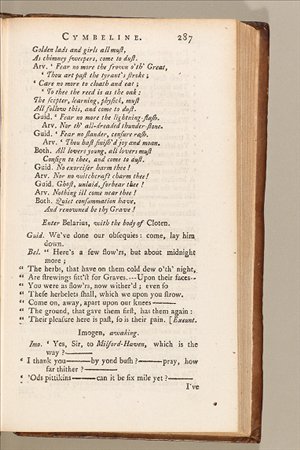 CYMBELINE. 287
Golden lads and girls all muſt,
As chimney ſweepers, come to duſt.
Arv. ‘ Fear no more the frown o'th' Great,
‘ Thou art paſt the tyrant's ſtroke;
‘ Care no more to cloath and eat;
‘ To thee the reed is as the oak:
The ſcepter, learning, phyſick, muſt
All follow this, and come to duſt.
Guid. ‘ Fear no more the lightning-flaſh.
Arv. Nor th' all-dreaded thunder-ſtone.
Guid. ‘ Fear no ſlander, cenſure raſh.
Arv. ‘ Thou haſt finiſh'd joy and moan.
Both. All lovers young, all lovers muſt
Conſign to thee, and come to duſt.
Guid. No exorciſer harm thee!
Arv. Nor no witchcraft charm thee!
Guid. Ghoſt, unlaid, forbear thee!
Arv. Nothing ill come near thee!
Both. Quiet conſummation have,
And renowned be thy Grave!
Enter Belarius, with the body of Cloten.
Guid. We've done our obſequies: come, lay him
down.
Bel. “ Here's a few flow'rs, but about midnight
more;
“ The herbs, that have on them cold dew o'th' night,
“ Are ſtrewings fat'ſt for Graves.—Upon their faces—
“ You were as flow'rs, now wither'd; even ſo
“ Theſe herbelets ſhall, which we upon you ſtrow.
“ Come on, away, apart upon our knees———
“ The ground, that gave them firſt, has them again:
“ Their pleaſure here is paſt, ſo is their pain. [Exeunt.
Imogen, awaking.
Imo. ‘ Yes, Sir, to Milford-Haven, which is the
way?———
‘ I thank you———by yond buſh?———pray, how
far thither?———
‘ 'Ods pittikins———can it be ſix mile yet?———
I've